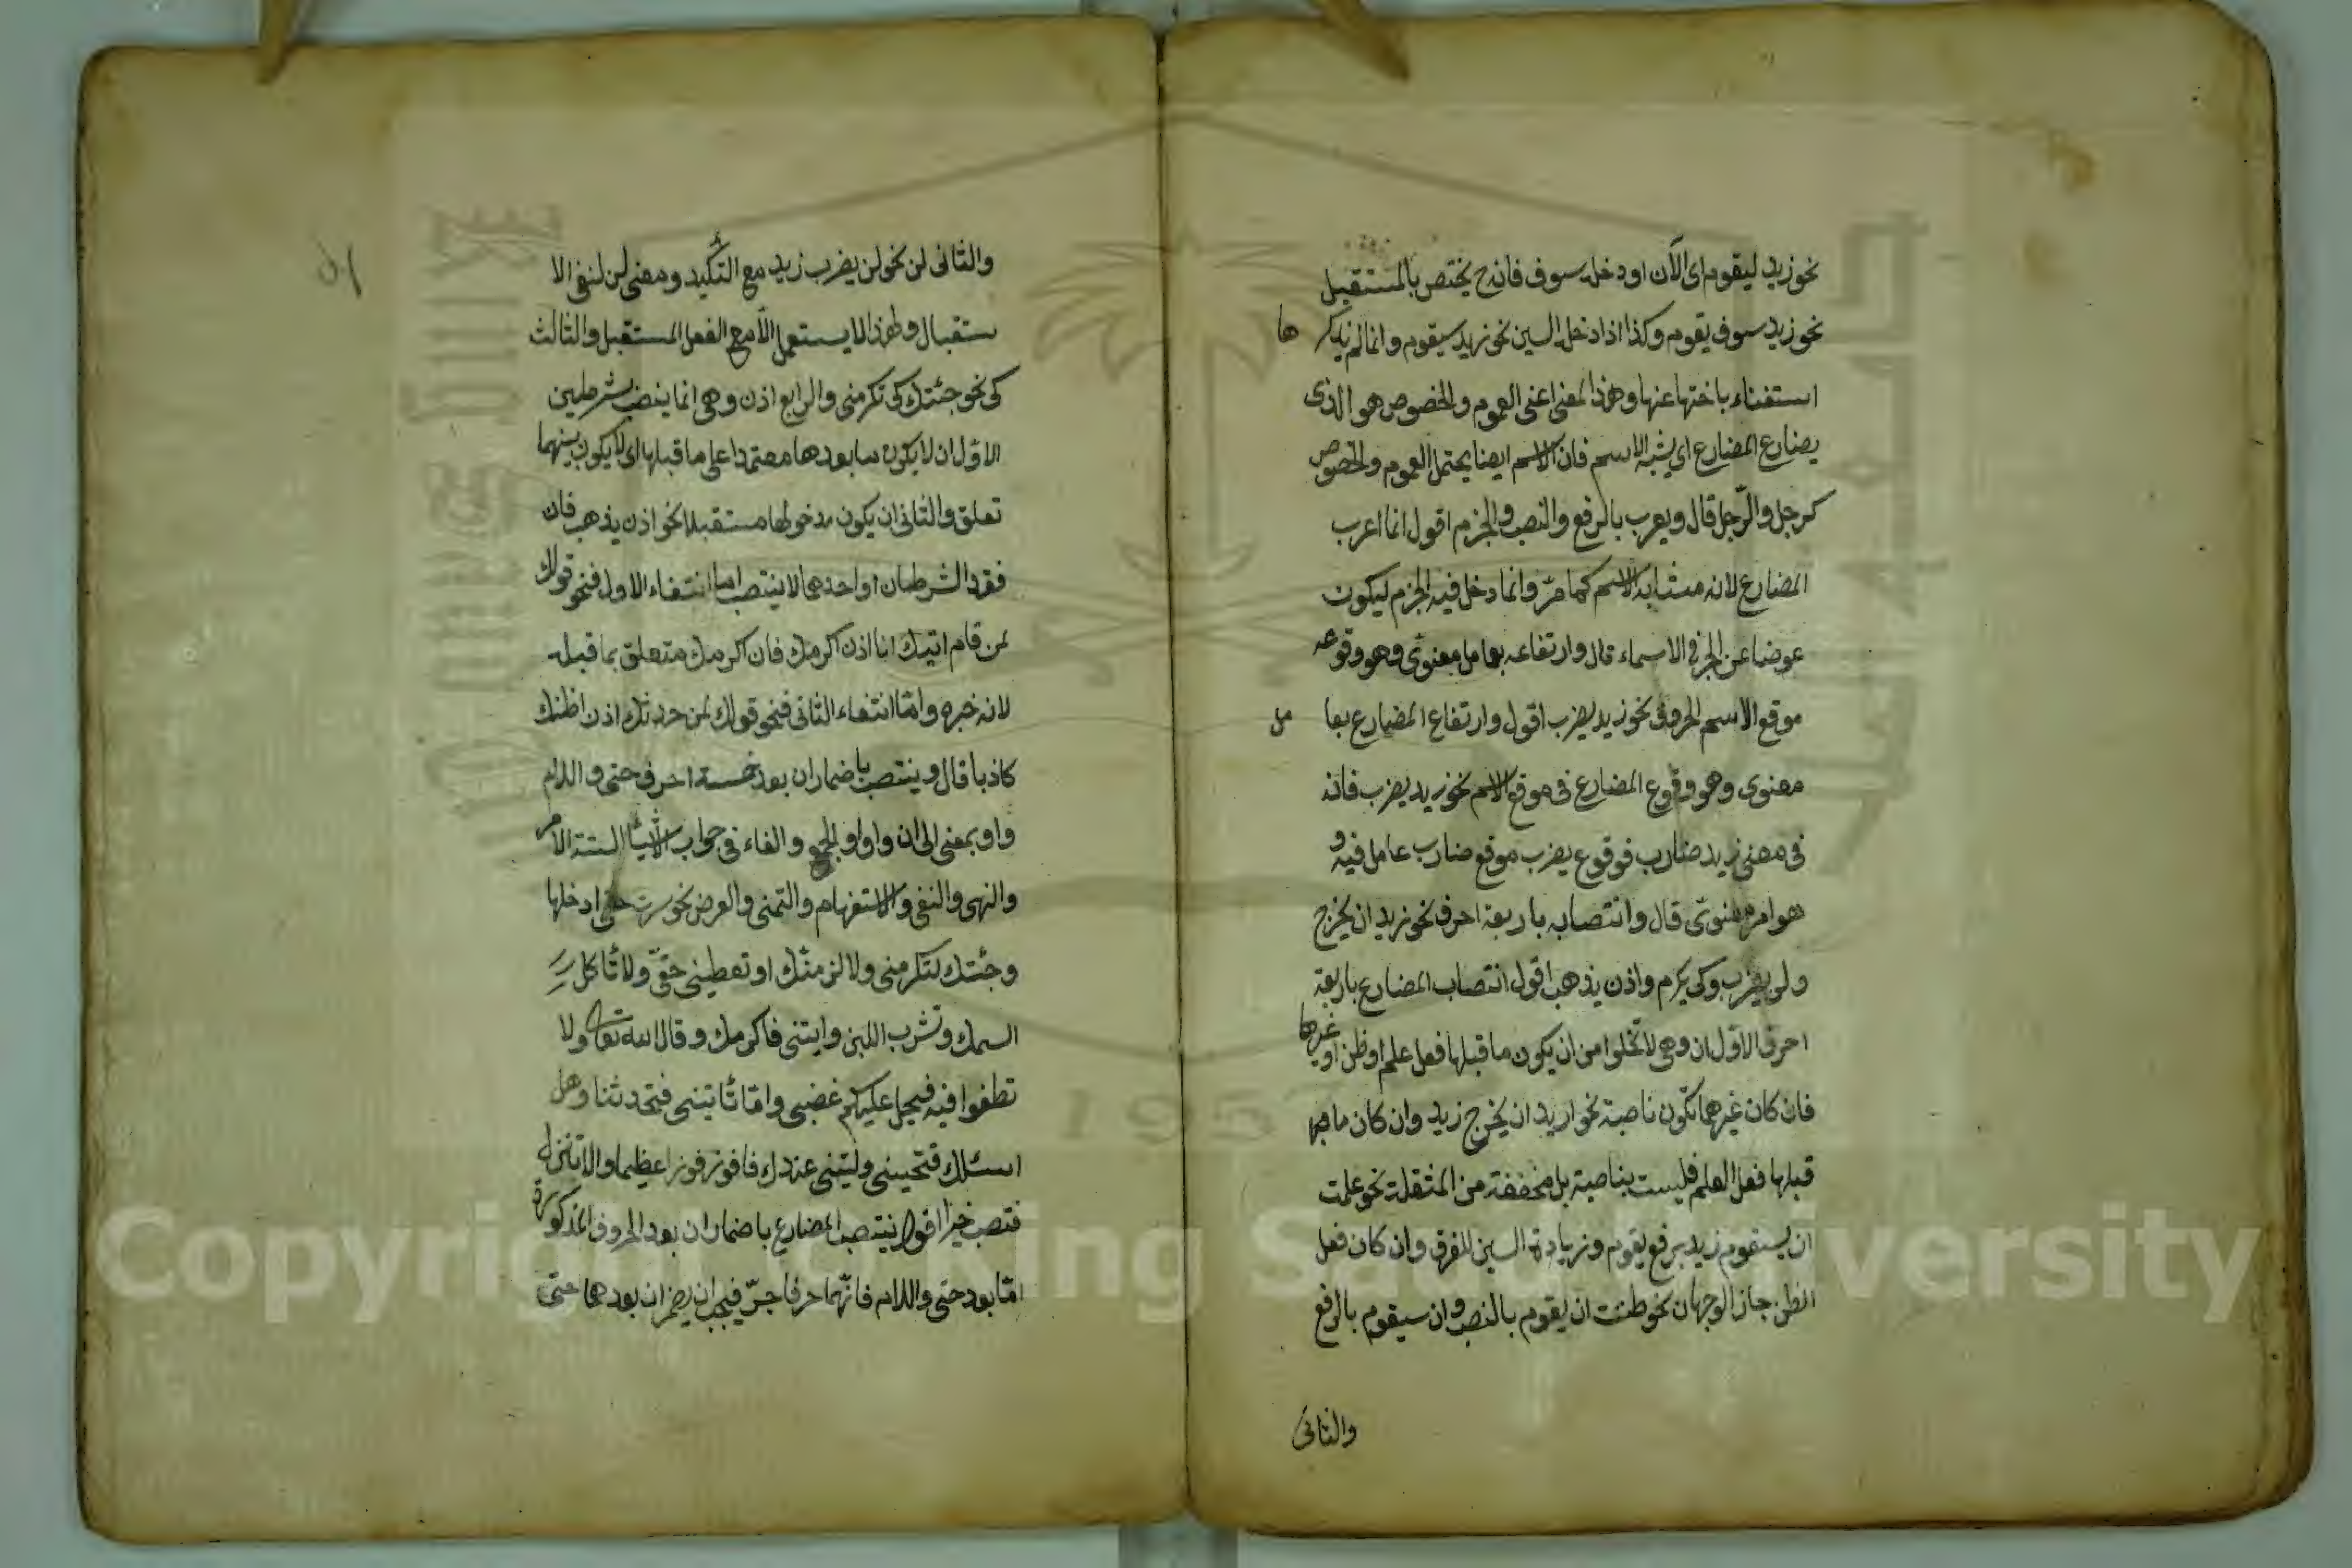 نحو زيد ليقوم اى الآن او دخل سوف فانه ح يختص بالمستقبل
نحو زيد سوف يقوم وكذا اذا دخل السين نحو زيد سيقوم وانما لم يذكر ها
استغناء باختها عنها وهذا المعنى اعنى العموم والخصوص هو الذى
يضارع المضارع اى يشبه الاسم فان الاسم ايضا يحتمل العموم والخصوص
كرجل والرّجل قال ويعرب بالرفع والنصب والجزم اقول انما اعرب
المضارع لانه مشابه الاسم كما مرّ وانما دخل فيه الجزم ليكون
عوضا عن الجر فى الاسماء قال وارتفاعه بعامل معنوى وهو وقوعه
موقع الاسم نحو زيد يضرب اقول وارتفاع المضارع بعا مل
معنوى وهو وقوع المضارع فى موقع الاسم نحو زيد يضرب فانه
فى معنى زيد ضارب فوقوع يضرب موقع ضارب عامل فيه و
هو امر معنوىّ قال وانتصابه باربعة احرف نحو زيد ان يخرج
ولن يضرب وكى يكرم واذن يذهب اقول انتصاب المضارع باربعة
احرف الاوّل ان وهى لا تخلوا من ان يكون ما قبلها فعل علم او ظن او غيرها
فان كان غيرهما تكون ناصبة نحو اريد ان يخرج زيد وان كان ما
قبلها فعل العلم فليست بناصبة بل مخففة من المثقلة نحو علمت
ان سيقوم زيد برفع يقوم وزيادة السين للفرق وان كان فعل
الظن جاز الوجهان نحو ظننت ان يقوم بالنصب وان سيقوم بالرفع
والثانى
والثانى لن نحو لن يضرب زيد مع التأكيد ومعنى لن لنفى الا
ستقبال ولهذا لا يستعمل الّا مع الفعل المستقبل والثالث
كى نحو جئتك كى تكرمنى والرابع اذن وهى انما ينصب بشرطين
الاوّل ان لا يكون ما بعدها معتمدا على ما قبلها اى لا يكون بينهما
تعلق والثانى ان يكون مدخولها مستقبلا نحو اذن يذهب فان
فقد الشرطان او احدهما لا ينتصب اما انتفاء الاول فنحو قولك
لمن قام اتيك انا اذن اكرمك فان اكرمك متعلق بما قبله
لانه خبره وامّا انتفاء الثانى فنحو قولك لمن حدثك اذن اظنك
كاذبا قال وينتصب باضمار ان بعد خمسة احرف حتى واللام
واو بمعنى الى ان وواو الجمع والفاء فى جواب الاشياء الستة الامر
والنهى والنفى والاستفهام والتمنى والعرض نحو سرت حتى ادخلها
وجئتك لتكرمنى ولا لزمنّك او تعطينى حقّى ولا تأكل
السمك وتشرب اللبن وايتنى فاكرمك وقال الله تعالى ولا
تطغوا فيه فيحل عليكم غضبى وما تأتينى فتحدثنا وهل
اسئلك فتجيبنى وليتنى عندك فافوز فوزا عظيما والا تنزل
فتصب خيرا اقول ينتصب المضارع باضمار ان بعد الحروف المذكورة
امّا بعد حتى واللام فانّهما حرفا جرّ فيجب ان يضمر ان بعدها حتى